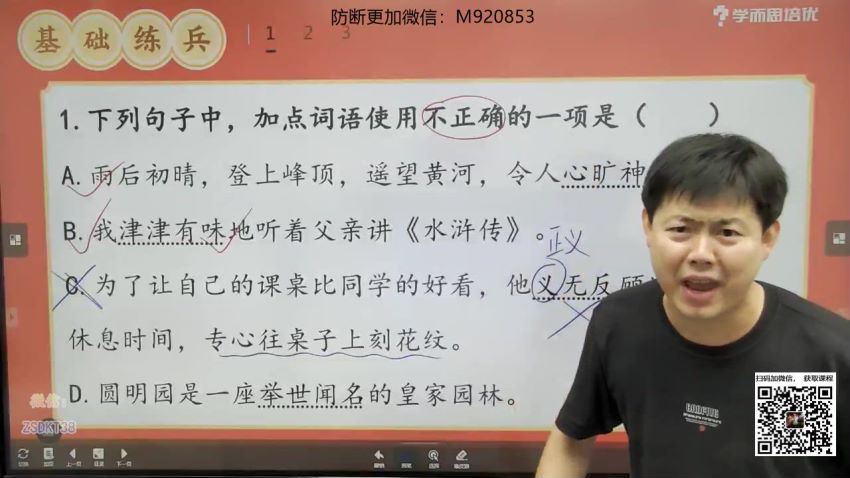 防断更加微信：M920853
学而思培优
基础练兵
1 2 3
1.下列句子中，加点词语使用不正确的一项是（ ）
A.雨后初晴，登上峰顶，遥望黄河，令人心旷神
B.我津津有味地听着父亲讲《水浒传》。
正义
C.为了让自己的课桌比同学的好看，他义无反顾
休息时间，专心往桌子上刻花纹。
D.圆明园是一座举世闻名的皇家园林。
扫码加微信，获取课程
微信：
ZSDKT38
上一页 目录 下一页